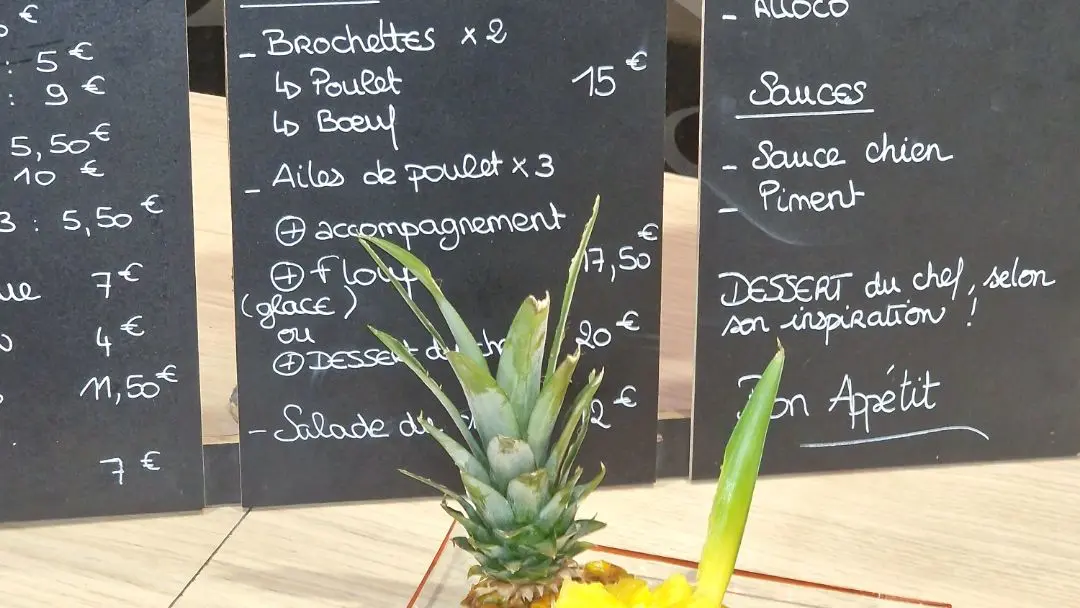 €
: 5 €
: 9 €
5,50 €
10 €
3 : 5,50 €
7 €
4 €
11,50 €
7 €
- Brochettes x 2
↳ Poulet 15 €
↳ Bœuf
- Ailes de poulet x 3
⊕ accompagnement
⊕ floup 17,50 €
(glace)
ou
⊕ DESSERT du 20 €
- Salade du 2 €
- ALLOCO
Sauces
- Sauce chien
- Piment
DESSERT du chef, selon
son inspiration !
Bon Appétit